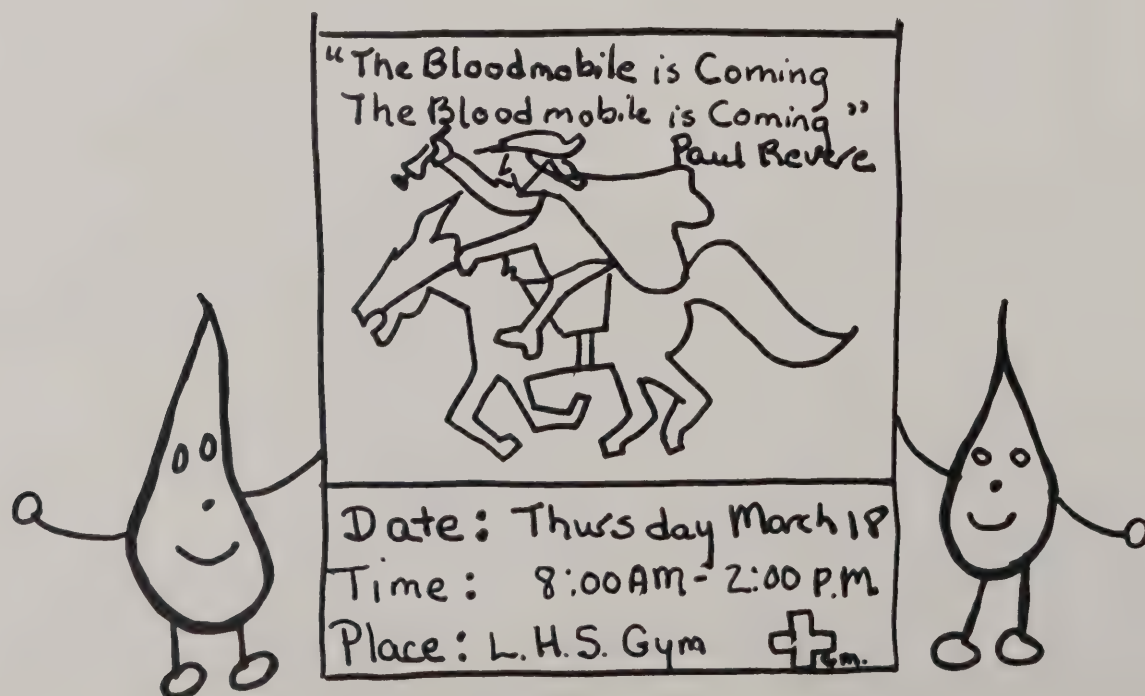 "The Bloodmobile is Coming
The Bloodmobile is Coming"
Paul Revere
Date: Thursday March 18
Time: 8:00AM - 2:00 P.M
Place: L.H.S. Gym